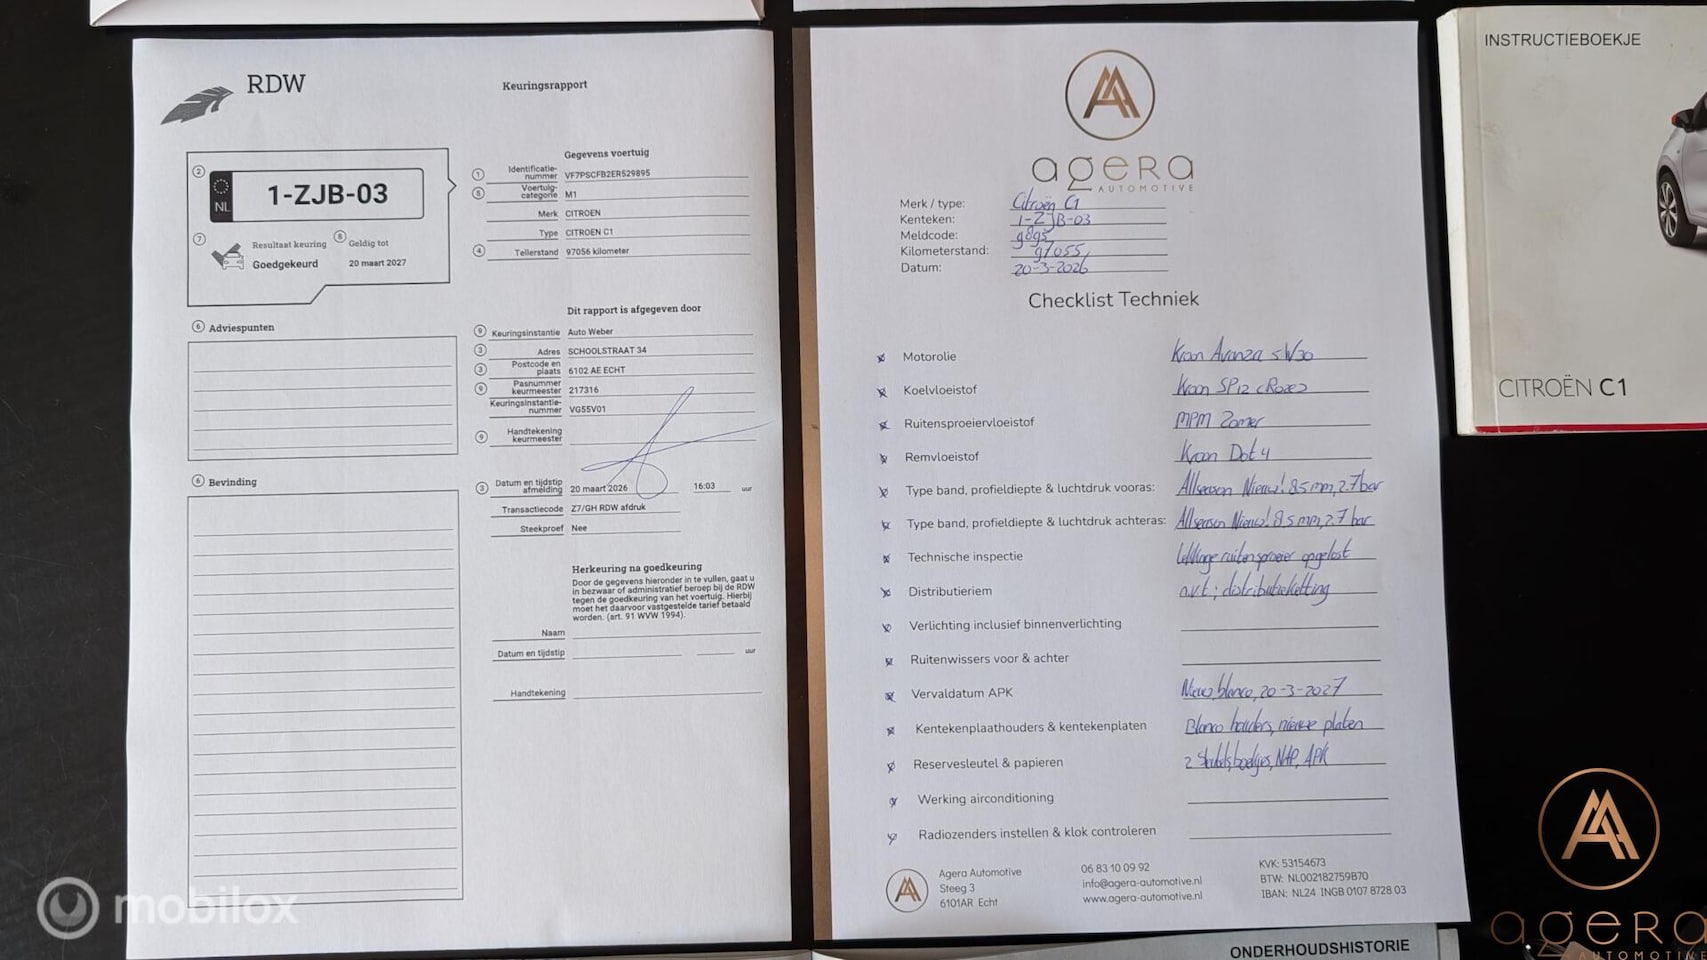 RDW
Keuringsrapport
NL
1-ZJB-03
7 Resultaat keuring
Goedgekeurd
8 Geldig tot
20 maart 2027
6 Adviespunten
6 Bevinding
Gegevens voertuig
1 Identificatie-
nummer VF7PSCFB2ER529895
5 Voertuig-
categorie M1
Merk CITROEN
Type CITROEN C1
4 Tellerstand 97056 kilometer
Dit rapport is afgegeven door
9 Keuringsinstantie Auto Weber
3 Adres SCHOOLSTRAAT 34
3 Postcode en
plaats 6102 AE ECHT
9 Pasnummer
keurmeester 217316
Keuringsinstantie-
nummer VG55V01
9 Handtekening
keurmeester
3 Datum en tijdstip
afmelding 20 maart 2026 16:03 uur
Transactiecode Z7/GH RDW afdruk
Steekproef Nee
Herkeuring na goedkeuring
Door de gegevens hieronder in te vullen, gaat u
in bezwaar of administratief beroep bij de RDW
tegen de goedkeuring van het voertuig. Hierbij
moet het daarvoor vastgestelde tarief betaald
worden. (art. 91 WVW 1994).
Naam
Datum en tijdstip uur
Handtekening
agera
AUTOMOTIVE
Merk / type: Citroën C1
Kenteken: 1-ZJB-03
Meldcode: 9895
Kilometerstand: 97055
Datum: 20-3-2026
Checklist Techniek
Motorolie Kroon Avanza 5W30
Koelvloeistof Kroon SP12
Ruitensproeiervloeistof MPM Zomer
Remvloeistof Kroon Dot 4
Type band, profieldiepte & luchtdruk vooras: Allseason Nieuw! 8.5mm, 2.7bar
Type band, profieldiepte & luchtdruk achteras: Allseason Nieuw! 8.5mm, 2.7 bar
Technische inspectie Lekkage ruitensproeier opgelost
Distributieriem n.v.t; distributieketting
Verlichting inclusief binnenverlichting
Ruitenwissers voor & achter
Vervaldatum APK Nieuw, blanco, 20-3-2027
Kentekenplaathouders & kentekenplaten Blanco houders, nieuwe platen
Reservesleutel & papieren 2 Sleutels, boekjes, NAP, APK
Werking airconditioning
Radiozenders instellen & klok controleren
Agera Automotive
Steeg 3
6101AR Echt
06 83 10 09 92
info@agera-automotive.nl
www.agera-automotive.nl
KVK: 53154673
BTW: NL002182759B70
IBAN: NL24 INGB 0107 8728 03
INSTRUCTIEBOEKJE
CITROËN C1
ONDERHOUDSHISTORIE
agera
AUTOMOTIVE
mobilox